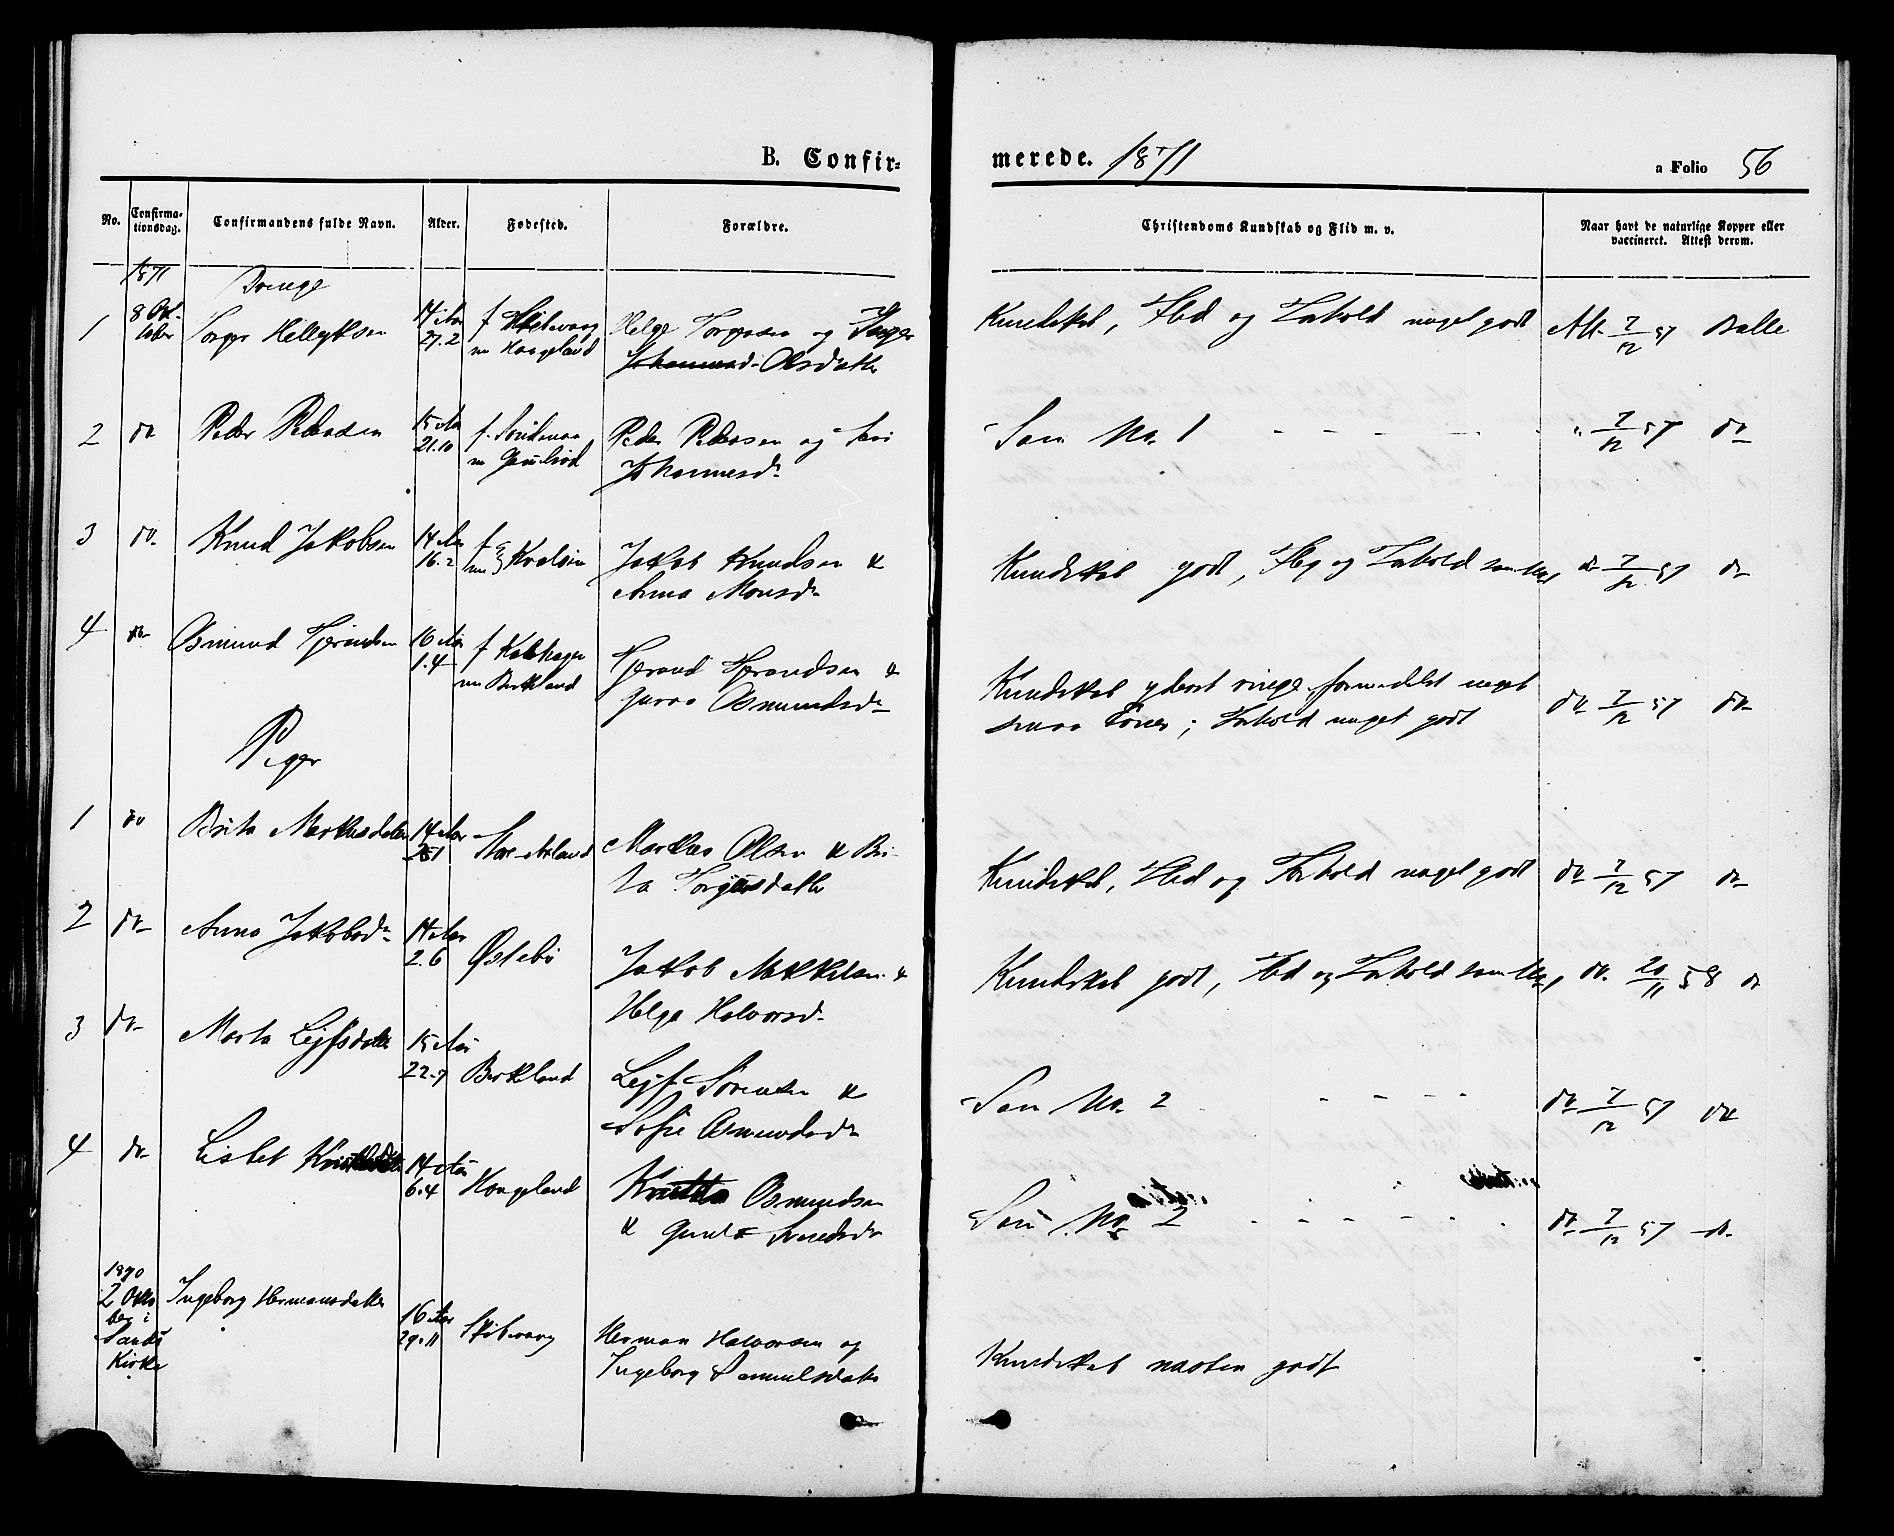 B. Confir-
merede. 1871
a Folio 56
No.
Confirma-
tionsdag.
Confirmandens fulde Navn.
Alder.
Fødested.
Forældre.
Christendoms Kundskab og Flid m. v.
Naar havt de naturlige Kopper eller
vaccineret. Attest derom.
1871
Drenge
1
8 Oct-
tober
14 Aar
27.2
Helge
og Inger
Johannesd. Olsdatter
Kundskab, Flid og Forhold meget godt
Att. 7/12 57 Balle
2
do
Peder Pedersen
15 Aar
21.10
Peder Pedersen og
Johannesd.
Som No. 1
" 7/12 57 do
3
do.
Knud Jakobsen
14 Aar
16.2
Jakob Knudsen &
Anna Monsd.
Kundskab godt, Flid og Forhold
do 7/12 57 do
4
do
Osmund
16 Aar
1.4
nu Birkland
&
Osmundsd.
Kundskab yderst ringe formedelst meget
smaa Evner; Forhold meget godt
do. 7/12 57 do
Piger
1
do
Brita Markusdatter
14 Aar
Markus Olsen & Bri-
ta
Kundskab, Flid og Forhold meget godt
do 7/12 57 do
2
do
Anna Jakobsd.
14 Aar
2.6
Østebø
Jakob Mikkelsen &
Helga Halvorsd.
Kundskab godt, Flid og Forhold
do. 20/11 58 do
3
do
Marta Lejfsdatter
15 Aar
22.7
Birkland
Lejf Sørensen &
Sofie Osmundsd.
Som No. 2
do 7/12 57 do
4
do
Lisbet
14 Aar
6.4
Haugeland
Osmundsen
&
Som No. 2
do 7/12 57 do
1870
2 Okto
ber i
Sands
Kirke
Ingeborg Hermansdatter
16 Aar
29.11
Herman Halvorsen og
Ingeborg Samuelsdatter
Kundskab næsten godt